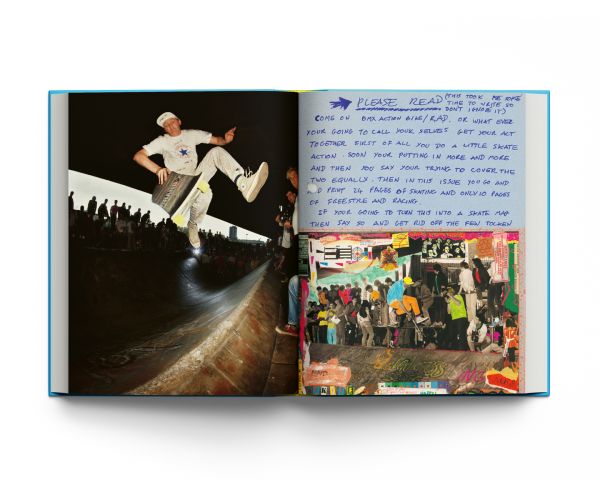 PLEASE READ (THIS TOOK ME SOME
TIME TO WRITE SO
DONT IGNORE IT)
COME ON BMX ACTION BIKE/RAD. OR WHAT EVER
YOUR GOING TO CALL YOUR SELVES GET YOUR ACT
TOGETHER FIRST OF ALL YOU DO A LITTLE SKATE
ACTION. SOON YOUR PUTTING IN MORE AND MORE
AND THEN YOU SAY YOUR TRYING TO COVER THE
TWO EQUALLY. THEN IN THIS ISSUE YOU GO AND
PRINT 24 PAGES OF SKATING AND ONLY 10 PAGES
OF FREESTYLE AND RACING.
IF YOUR GOING TO TURN THIS INTO A SKATE MAG
THEN SAY SO AND GET RID OFF THE FEW TOCKEN